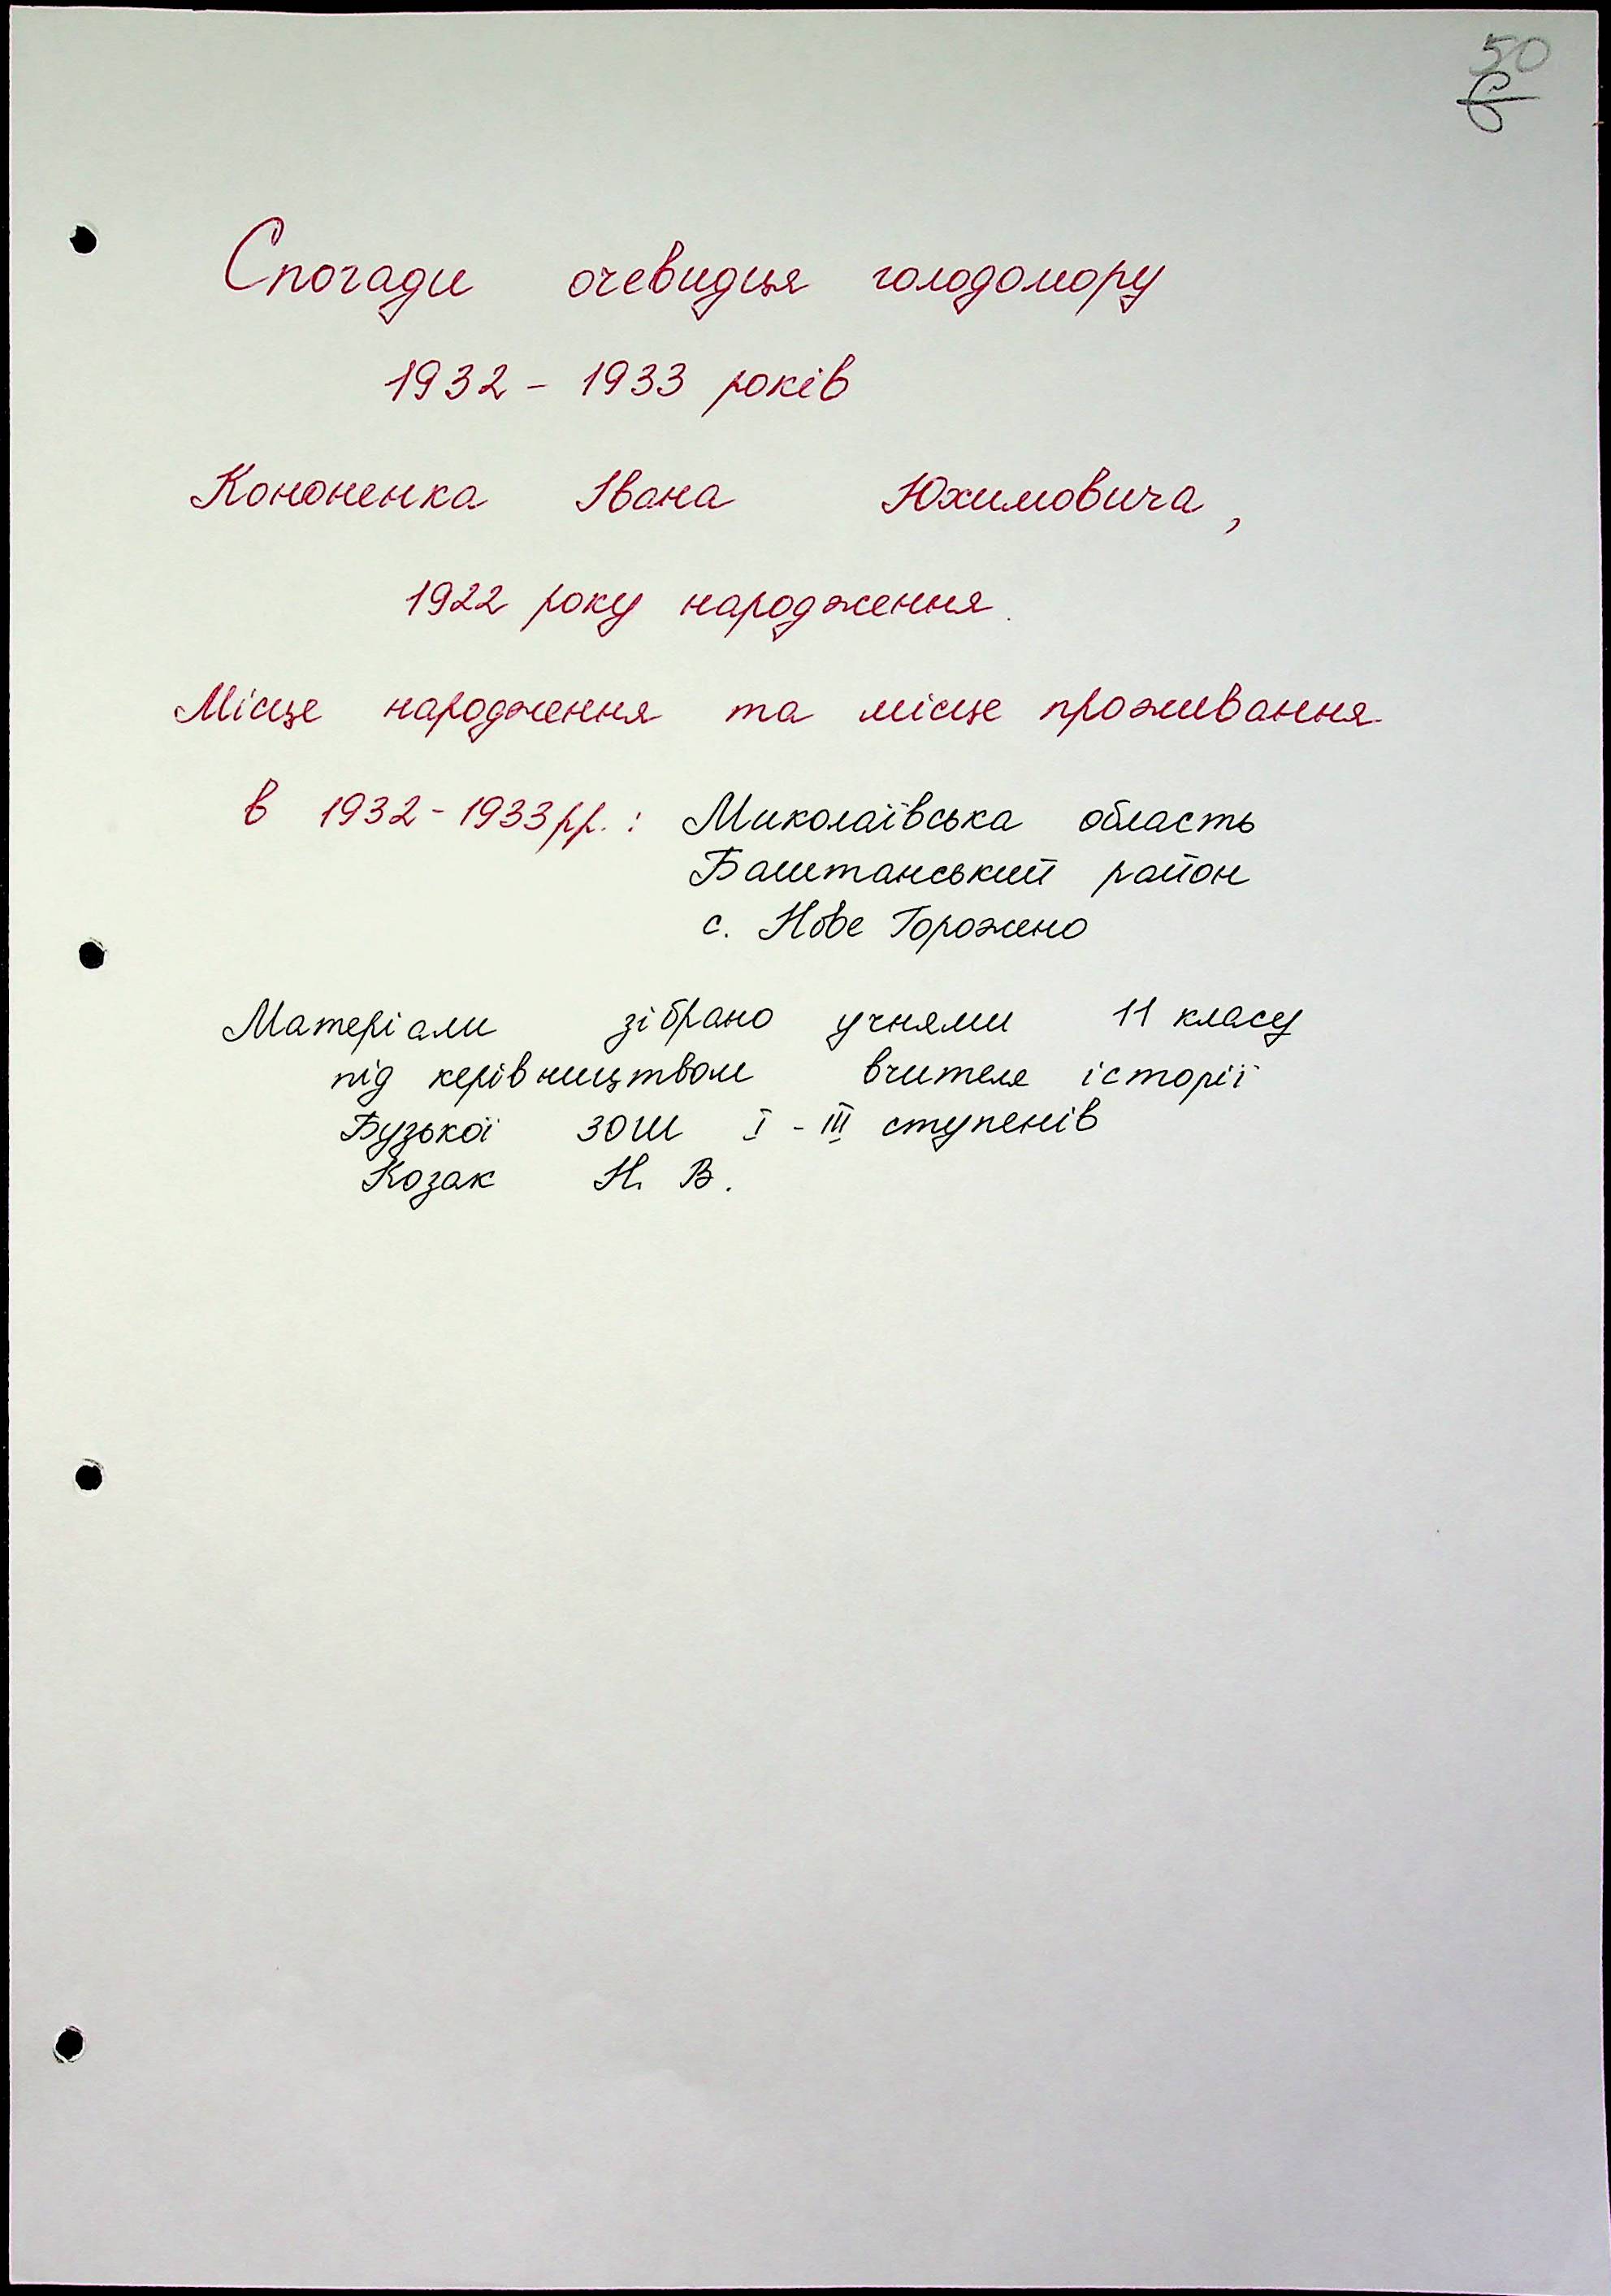 50
6
Спогади очевидця голодомору
1932 - 1933 років
Кононенка Івана Юхимовича,
1922 року народження.
Місце народження та місце проживання
в 1932-1933 рр. : Миколаївська область
Баштанський район
с. Нове Горожено
Матеріали зібрано учнями 11 класу
під керівництвом вчителя історії
Бузької ЗОШ I - III ступенів
Козак Н. В.